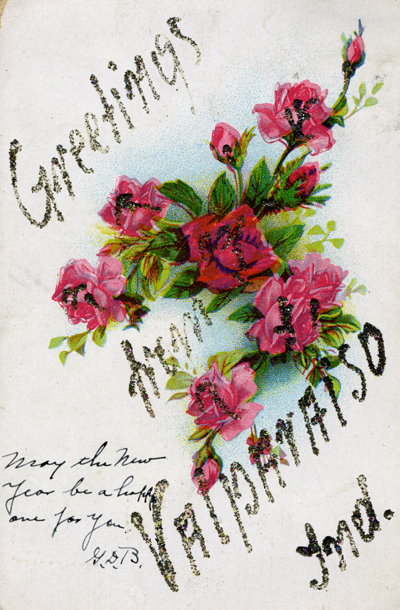 Greetings
from
Valparaiso
Ind.
May the New
Year be a happy
one for you.
G.D.B.